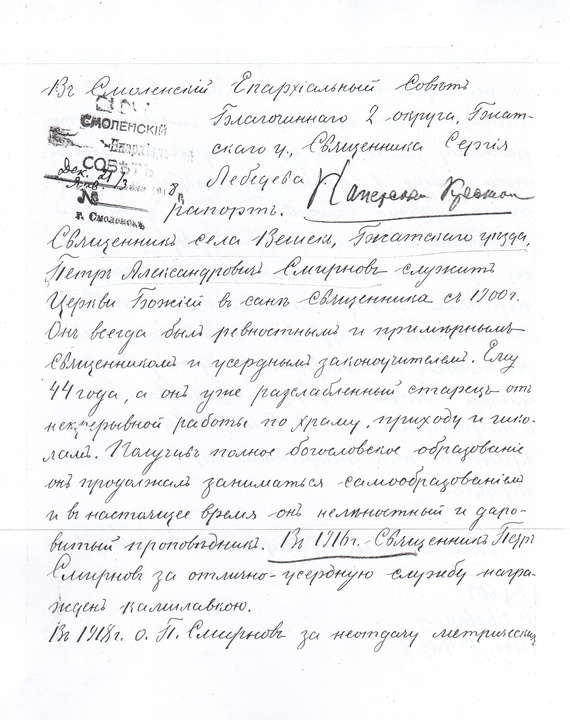 Въ Смоленскiй Епархiальный Совѣтъ
Благочиннаго 2 округа, Гжат-
скаго у., Священника Сергiя
Лебедева
СМОЛЕНСКIЙ
Епархiаль
СОВѢТЪ
Дек. 21/3
Янв
8
№
г. Смоленскъ
Наперсный Крестом
рапортъ.
Священникъ села Вешки, Гжатскаго уѣзда,
Петръ Александровичъ Смирновъ служитъ
Церкви Божiей въ санѣ священника съ 1900 г.
Онъ всегда былъ ревностнымъ и примѣрнымъ
священникомъ и усерднымъ законоучителемъ. Ему
44 года, а онъ уже разслабленный старецъ отъ
непрерывной работы по храму, приходу и шко-
ламъ. Получивъ полное богословское образованiе
онъ продолжалъ заниматься самообразованiемъ
и въ настоящее время онъ нелѣностный и даро-
витый проповѣдникъ. Въ 1916 г. Священникъ Петръ
Смирновъ за отлично-усердную службу награ-
жденъ камилавкою.
Въ 1918 г. о. П. Смирновъ за неотдачу метрических